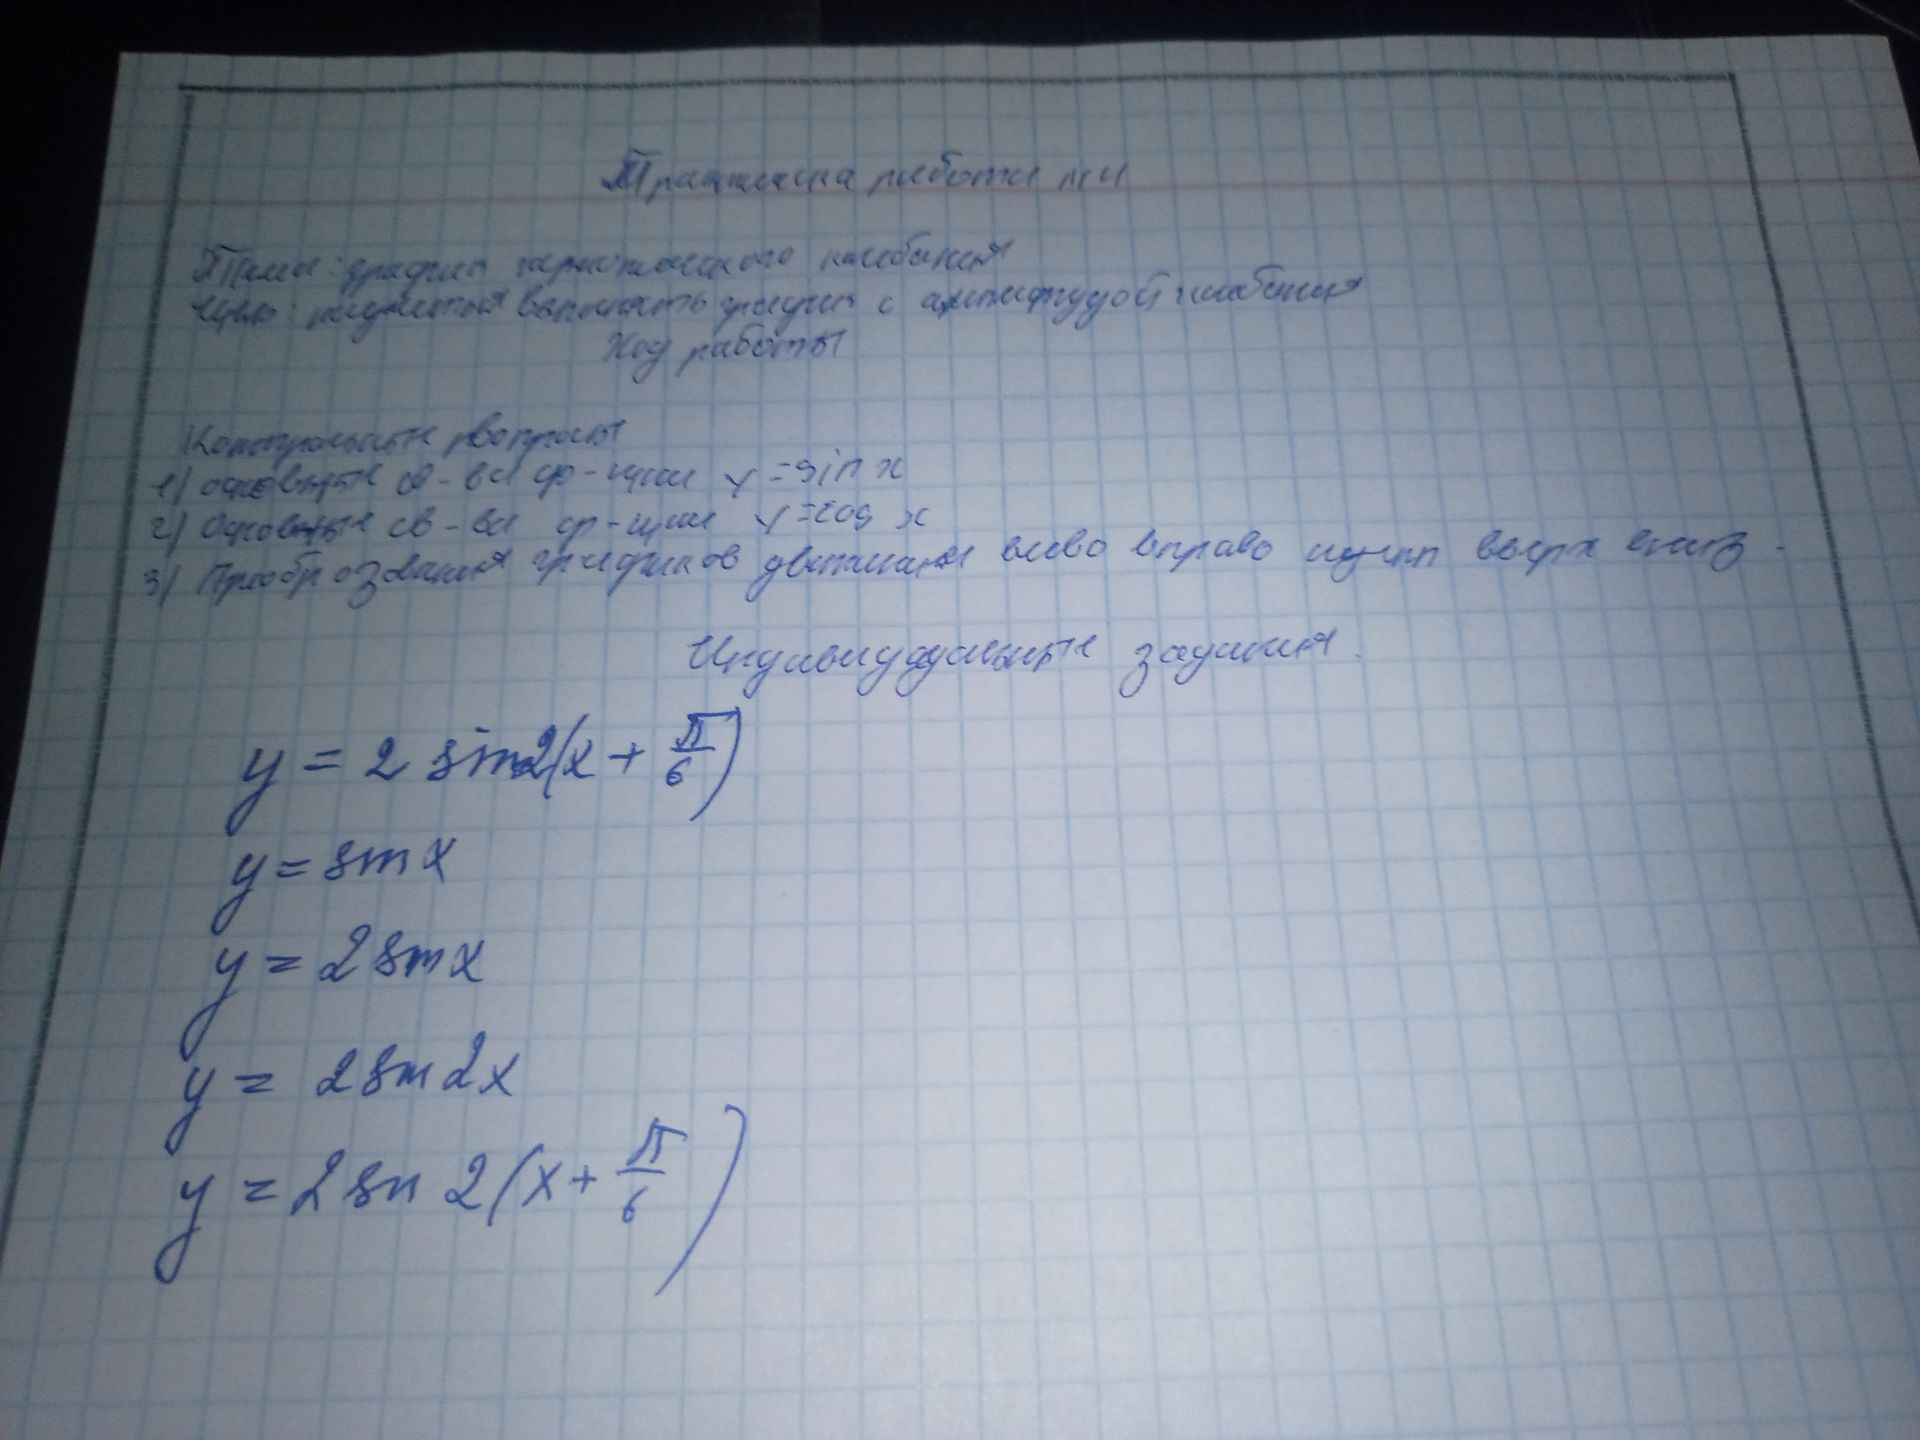 работы
Тема: график гармонического колебания
Цель: выполнять график с амплитудой колебания
Ход работы
Контрольные вопросы
1) основные св-ва ф-ции y = sin x
2) Основные св-ва ф-ции y = cos x
3) Преобразования графиков влево вправо вверх вниз.
Индивидуальные задания.
y = 2 sin2(x + π/6)
y = sin x
y = 2 sin x
y = 2 sin 2x
y = 2 sin 2(x + π/6)